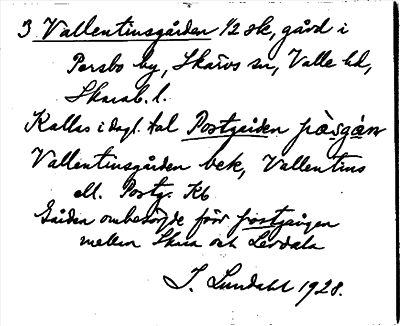 3 Vallentinsgården 1/2 sk, gård i
Persbo by, Skärvs sn, Valle hd,
Skarab. l.
Kallas i dagl. tal Postgården pàsgàṉ
Vallentinsgården bek, Vallentins
ell. Postg. Kb
Gården ombesörjde förr postgången
mellan Skara och Lerdala
J. Lundahl 1928.